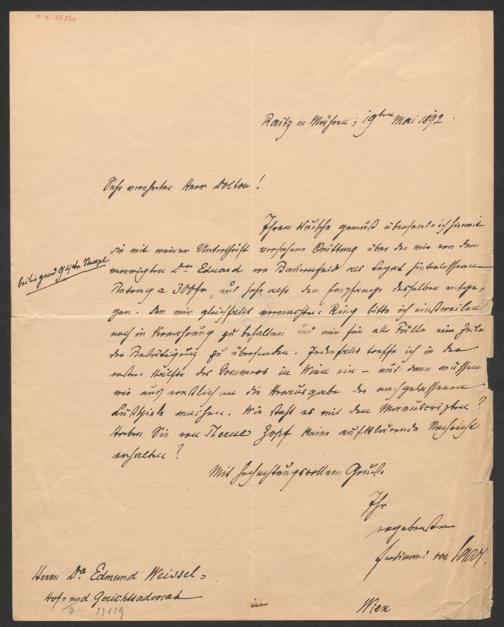 Raitz in Mähren, 19ten Mai 1892.
Sehr verehrter Herr Doktor!
Ihrem Wunsche gemäß übersende ich hiermit
die mit meiner Unterschrift versehene Quittung über den mir von dem
verewigten Dr Eduard von Bauernfeld als Legat hinterlassenen
Betrag a 300 fr. und sehe also dem Empfange desselben entge-
gen. Den mir gleichfalls vermachten Ring bitte ich einstweilen
noch in Verwahrung zu behalten und mir für alle Fälle eine Zeile
der Bestätigung zu übersenden. Jedenfalls treffe ich in der
ersten Hälfte des Sommers in Wien ein – und dann müssen
wir uns ernstlich an die Herausgabe der nachgelassenen
Lustspiele machen. Wie steht es mit den Manuscripten?
Haben Sie von keine aufklärende Nachricht
erhalten?
Mit hochachtungsvollem Gruße
Ihr
ergebenster
Ferdinand von Saar.
Herrn Dr. Edmund Weissel,
Hof- und Gerichtsadvocat
in
Wien